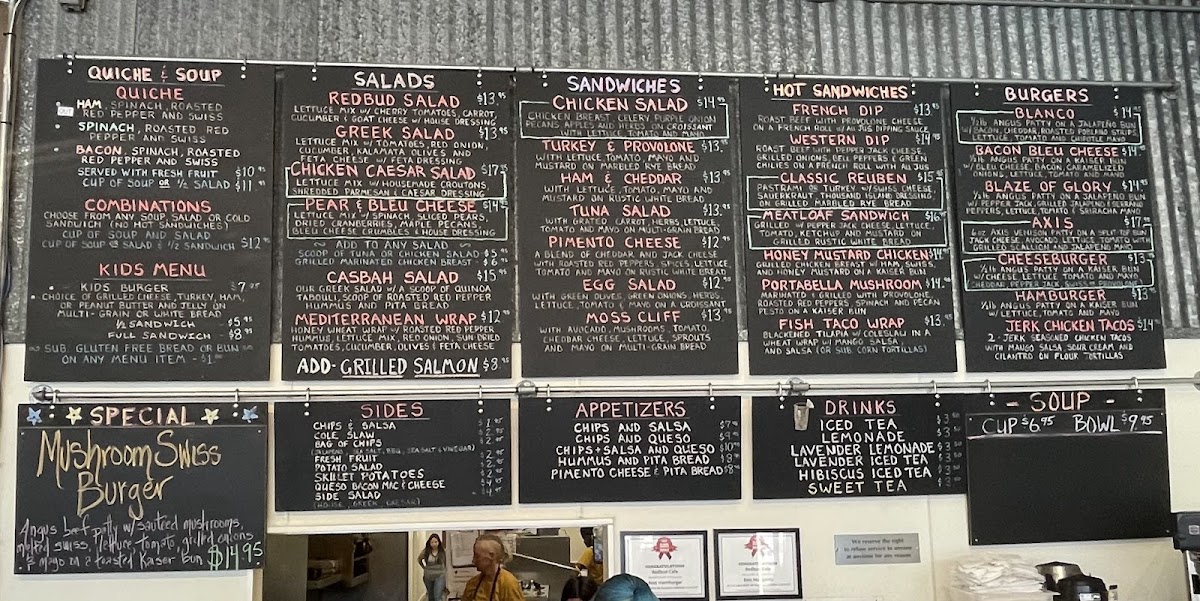 QUICHE & SOUP
QUICHE
• HAM, SPINACH, ROASTED
RED PEPPER AND SWISS
• SPINACH, ROASTED RED
PEPPER AND SWISS
• BACON, SPINACH, ROASTED
RED PEPPER AND SWISS
SERVED WITH FRESH FRUIT $10.95
CUP OF SOUP OR ½ SALAD $11.95
COMBINATIONS
CHOOSE FROM ANY SOUP, SALAD OR COLD
SANDWICH (NO HOT SANDWICHES)
CUP OF SOUP AND SALAD
CUP OF SOUP OR SALAD & ½ SANDWICH $12.95
KIDS MENU
• KIDS BURGER $7.95
• CHOICE OF GRILLED CHEESE, TURKEY, HAM,
OR PEANUT BUTTER AND JELLY ON
MULTI-GRAIN OR WHITE BREAD
½ SANDWICH - $5.95
FULL SANDWICH - $8.95
~ SUB GLUTEN FREE BREAD OR BUN ~
ON ANY MENU ITEM - $1.00
SALADS
REDBUD SALAD $13.95
LETTUCE MIX W/ CHERRY TOMATOES, CARROT,
CUCUMBER & GOAT CHEESE W/ HOUSE DRESSING
GREEK SALAD $13.95
LETTUCE MIX W/ TOMATOES, RED ONION,
CUCUMBER, KALAMATA OLIVES AND
FETA CHEESE W/ FETA DRESSING
CHICKEN CAESAR SALAD $17.95
LETTUCE MIX W/ HOUSEMADE CROUTONS,
SHREDDED PARMESAN & CAESAR DRESSING
PEAR & BLEU CHEESE $14.95
LETTUCE MIX W/ SPINACH, SLICED PEARS,
DRIED CRANBERRIES, MAPLE PECANS
BLEU CHEESE CRUMBLES & HOUSE DRESSING
~ ADD TO ANY SALAD ~
SCOOP OF TUNA OR CHICKEN SALAD - $5.95
GRILLED MARINATED CHICKEN BREAST - $6.95
CASBAH SALAD $15.95
OUR GREEK SALAD W/ A SCOOP OF QUINOA
TABOULI, SCOOP OF ROASTED RED PEPPER
HUMMUS AND PITA BREAD
MEDITERRANEAN WRAP $12.95
HONEY WHEAT WRAP W/ ROASTED RED PEPPER
HUMMUS, LETTUCE MIX, RED ONION, SUN-DRIED
TOMATOES, CUCUMBER, OLIVES & FETA CHEESE
ADD- GRILLED SALMON $8.95
SANDWICHES
CHICKEN SALAD $14.95
CHICKEN BREAST, CELERY, PURPLE ONION
PECANS APPLES AND HERBS ON CROISSANT
WITH LETTUCE, TOMATO AND MAYO
TURKEY & PROVOLONE $13.95
WITH LETTUCE, TOMATO, MAYO AND
MUSTARD ON MARBLED RYE BREAD
HAM & CHEDDAR $13.95
WITH LETTUCE, TOMATO, MAYO AND
MUSTARD ON RUSTIC WHITE BREAD
TUNA SALAD $13.95
WITH GRATED CARROT, HERBS, LETTUCE
TOMATO AND MAYO ON MULTI-GRAIN BREAD
PIMENTO CHEESE $12.95
A BLEND OF CHEDDAR AND JACK CHEESE
WITH ROASTED RED PEPPERS, SPICES, LETTUCE
TOMATO AND MAYO ON RUSTIC WHITE BREAD
EGG SALAD $12.95
WITH GREEN OLIVES, GREEN ONIONS, HERBS,
LETTUCE, TOMATO & MAYO ON A CROISSANT
MOSS CLIFF $13.95
WITH AVOCADO, MUSHROOMS, TOMATO,
CHEDDAR CHEESE, LETTUCE, SPROUTS
AND MAYO ON MULTI-GRAIN BREAD
HOT SANDWICHES
FRENCH DIP $13.95
ROAST BEEF WITH PROVOLONE CHEESE
ON A FRENCH ROLL W/ AU JUS DIPPING SAUCE
WESTERN DIP $14.95
ROAST BEEF WITH PEPPER JACK CHEESE,
GRILLED ONIONS, BELL PEPPERS & GREEN
CHILIES ON A FRENCH ROLL WITH AU JUS
CLASSIC REUBEN $15.95
PASTRAMI OR TURKEY W/ SWISS CHEESE,
SAUERKRAUT, THOUSAND ISLAND DRESSING
ON GRILLED MARBLED RYE BREAD
MEATLOAF SANDWICH $16.95
GRILLED W/ PEPPER JACK CHEESE, LETTUCE,
TOMATO, KETCHUP AND MUSTARD ON
GRILLED RUSTIC WHITE BREAD
HONEY MUSTARD CHICKEN $14.95
GRILLED CHICKEN BREAST W/ HAM, SWISS,
AND HONEY MUSTARD ON A KAISER BUN
PORTABELLA MUSHROOM $14.95
MARINATED & GRILLED WITH PROVOLONE,
ROASTED RED PEPPERS, SPINACH AND PECAN
PESTO ON A KAISER BUN
FISH TACO WRAP $13.95
BLACKENED TILAPIA W/ COLESLAW IN A
WHEAT WRAP W/ MANGO SALSA,
AND SALSA (OR SUB CORN TORTILLAS)
BURGERS
BLANCO $14.95
½ lb ANGUS PATTY ON A JALAPEÑO BUN
W/ BACON, CHEDDAR, ROASTED POBLANO STRIPS,
LETTUCE, TOMATO AND CHIPOTLE MAYO
BACON BLEU CHEESE $14.95
½ lb ANGUS PATTY ON A KAISER BUN
W/ BLEU CHEESE, BACON, CARAMELIZED
ONIONS, LETTUCE, TOMATO AND MAYO
BLAZE OF GLORY $14.95
½ lb ANGUS PATTY ON A JALAPEÑO BUN
W/ PEPPER JACK, GRILLED JALAPEÑO & SERRANO
PEPPERS, LETTUCE, TOMATO & SRIRACHA MAYO
AXIS $17.95
6 oz AXIS VENISON PATTY ON A SPLIT-TOP BUN
JACK CHEESE, AVOCADO, LETTUCE TOMATO WITH
GRILLED SCALLION AND JALAPENO MAYO
CHEESEBURGER $13.95
½ lb ANGUS PATTY ON A KAISER BUN
W/ CHEESE, LETTUCE TOMATO AND MAYO
CHEDDAR, PEPPER JACK, SWISS OR PROVOLONE
HAMBURGER $13
½ lb ANGUS PATTY ON A KAISER BUN
W/ LETTUCE, TOMATO AND MAYO
JERK CHICKEN TACOS $14
2 - JERK SEASONED CHICKEN TACOS
WITH MANGO SALSA, SOUR CREAM AND
CILANTRO ON FLOUR TORTILLAS
SPECIAL
Mushroom Swiss
Burger
Angus beef patty w/ sauteed mushrooms,
melted swiss, lettuce, tomato, grilled onions
& mayo on a toasted Kaiser Bun $14.95
SIDES
CHIPS & SALSA
COLE SLAW
BAG OF CHIPS
(JALAPENO, SEA SALT, BBQ, SEA SALT & VINEGAR)
FRESH FRUIT
POTATO SALAD
SKILLET POTATOES
QUESO BACON MAC & CHEESE
SIDE SALAD
(HOUSE, GREEK, CAESAR)
APPETIZERS
CHIPS AND SALSA
CHIPS AND QUESO
CHIPS + SALSA AND QUESO
HUMMUS AND PITA BREAD
PIMENTO CHEESE & PITA BREAD
DRINKS
ICED TEA
LEMONADE
LAVENDER LEMONADE
LAVENDER ICED TEA
HIBISCUS ICED TEA
SWEET TEA
- SOUP -
CUP $6.95 BOWL $9.95
CONGRATULATIONS
Redbud Cafe
CONGRATULATIONS
Redbud Cafe
We reserve the right
to refuse service to anyone
at anytime for any reason